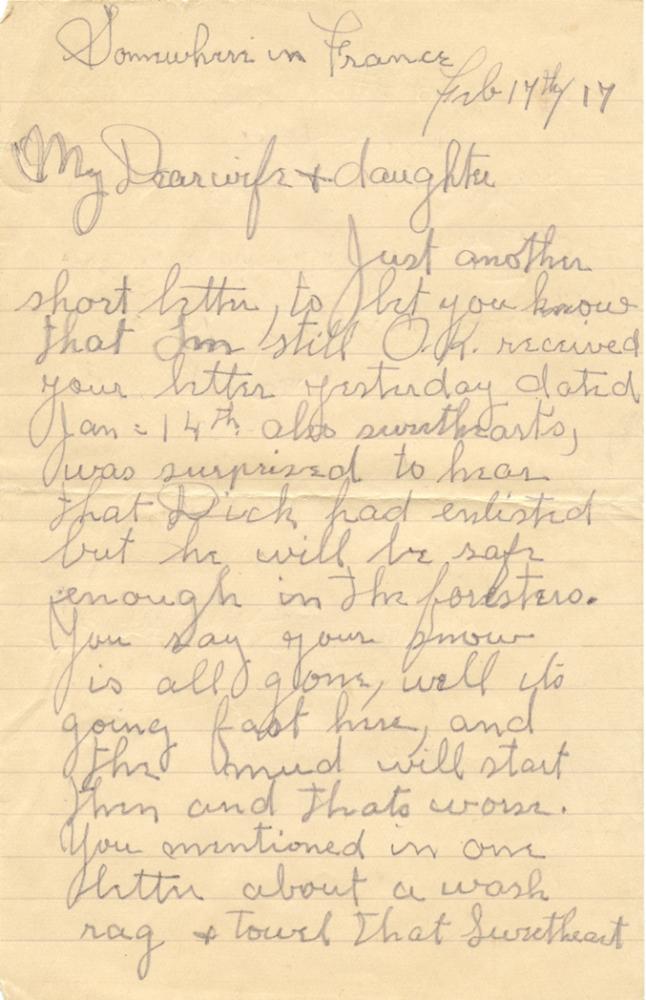 Somewhere in France
Feb 17th/17
My Dear wife + daughter
Just another
short letter, to let you know
that Im still O.K. received
your letter yesterday dated
Jan = 14th also sweethearts,
was surprized to hear
that Dick had enlisted
but he will be safe
enough in the foresters.
You say your snow
is all gone, well its
going fast here, and
the mud will start
then and thats worse.
You mentioned in one
letter about a wash
rag + Towel that Sweetheart